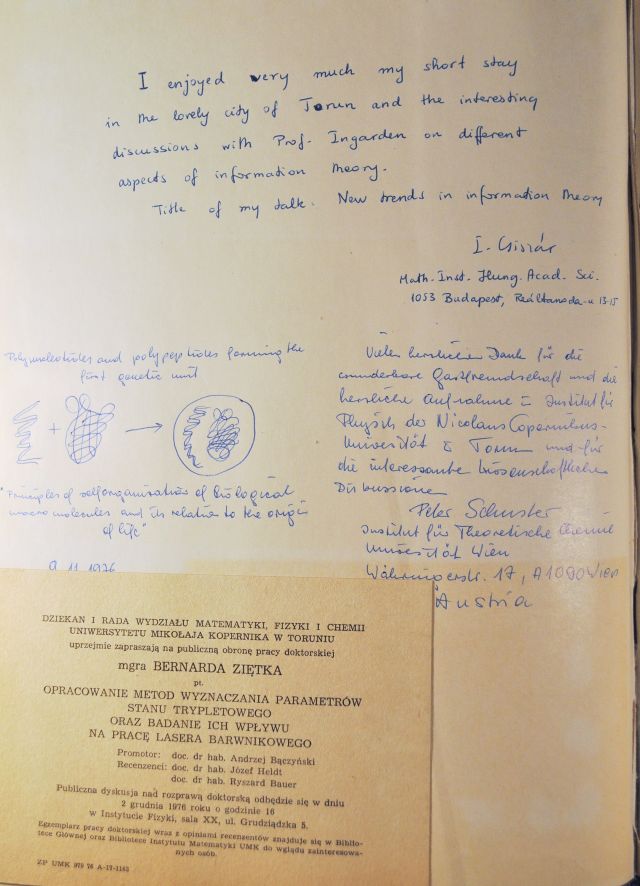 I enjoyed very much my short stay
in the lovely city of Torun and the interesting
discussions with Prof. Ingarden on different
aspects of information theory.
Title of my talk. New trends in information theory
I. Csiszár
Math. Inst. Hung. Acad. Sci.
1053 Budapest, Reáltanoda-u 13-15
Polynucleotides and polypeptides forming the
first genetic unit
+
"Principles of selforganization of biological
macromolecules and its relation to the origin
of life"
9.11.1976
Vielen herzlichen Dank für die
wunderbare Gastfreundschaft und die
herzliche Aufnahme im Institut für
Physik der Nicolaus Copernicus-
Universität in Torun und für
die interessante wissenschaftliche
Diskussion
Peter Schuster
Institut für Theoretische Chemie
Universität Wien
Währingerstr. 17, A1090 Wien
Austria
DZIEKAN I RADA WYDZIAŁU MATEMATYKI, FIZYKI I CHEMII
UNIWERSYTETU MIKOŁAJA KOPERNIKA W TORUNIU
uprzejmie zapraszają na publiczną obronę pracy doktorskiej
mgra BERNARDA ZIĘTKA
pt.
OPRACOWANIE METOD WYZNACZANIA PARAMETRÓW
STANU TRYPLETOWEGO
ORAZ BADANIE ICH WPŁYWU
NA PRACĘ LASERA BARWNIKOWEGO
Promotor: doc. dr hab. Andrzej Bączyński
Recenzenci: doc. dr hab. Józef Heldt
doc. dr hab. Ryszard Bauer
Publiczna dyskusja nad rozprawą doktorską odbędzie się w dniu
2 grudnia 1976 roku o godzinie 16
w Instytucie Fizyki, sala XX, ul. Grudziądzka 5.
Egzemplarz pracy doktorskiej wraz z opiniami recenzentów znajduje się w Biblio-
tece Głównej oraz Bibliotece Instytutu Matematyki UMK do wglądu zainteresowa-
nych osób.
ZP UMK 979 76 A-17-1163